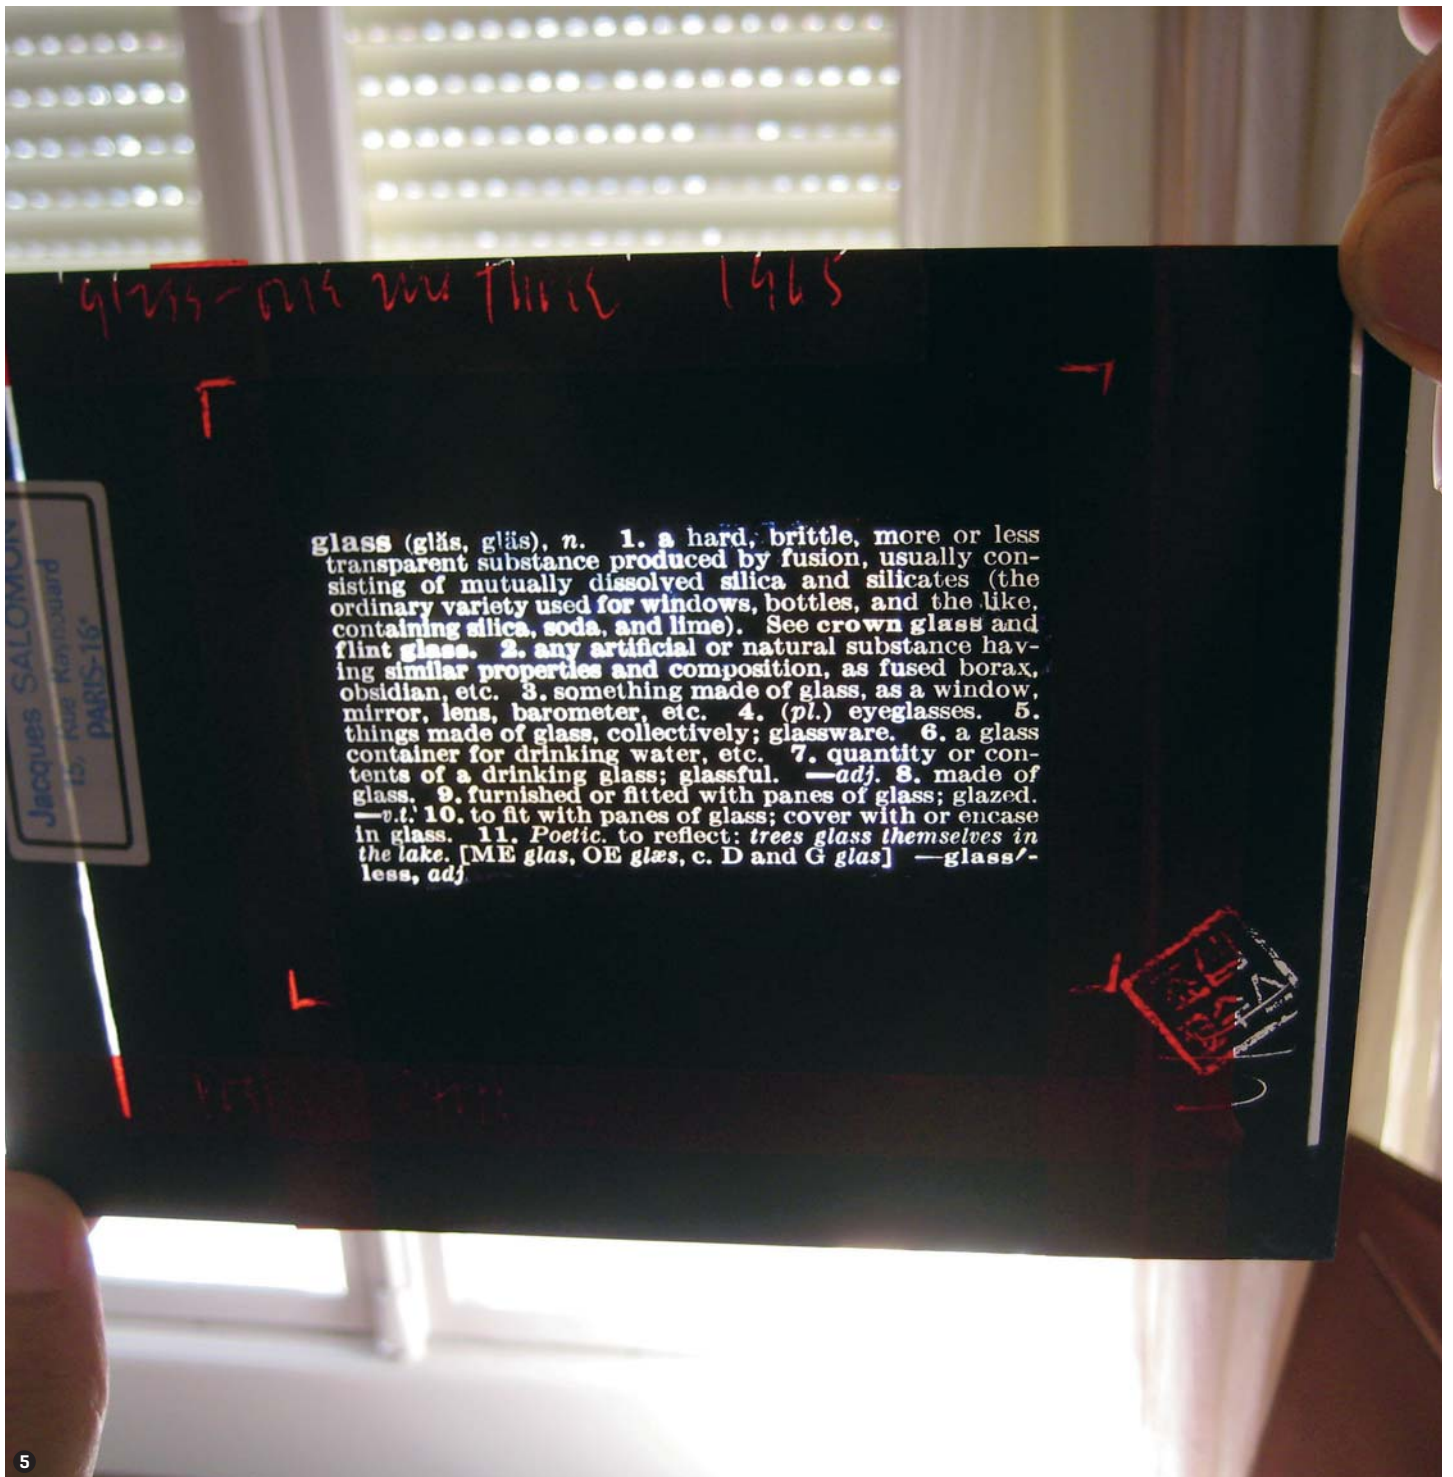 glass-one and three 1965
glass (glăs, gläs), n. 1. a hard, brittle, more or less
transparent substance produced by fusion, usually con-
sisting of mutually dissolved silica and silicates (the
ordinary variety used for windows, bottles, and the like,
containing silica, soda, and lime). See crown glass and
flint glass. 2. any artificial or natural substance hav-
ing similar properties and composition, as fused borax,
obsidian, etc. 3. something made of glass, as a window,
mirror, lens, barometer, etc. 4. (pl.) eyeglasses. 5.
things made of glass, collectively; glassware. 6. a glass
container for drinking water, etc. 7. quantity or con-
tents of a drinking glass; glassful. —adj. 8. made of
glass. 9. furnished or fitted with panes of glass; glazed.
—v.t. 10. to fit with panes of glass; cover with or encase
in glass. 11. Poetic. to reflect: trees glass themselves in
the lake. [ME glas, OE glæs, c. D and G glas] —glass′-
less, adj
Jacques SALOMON
15, Rue Raynouard
PARIS-16e
5